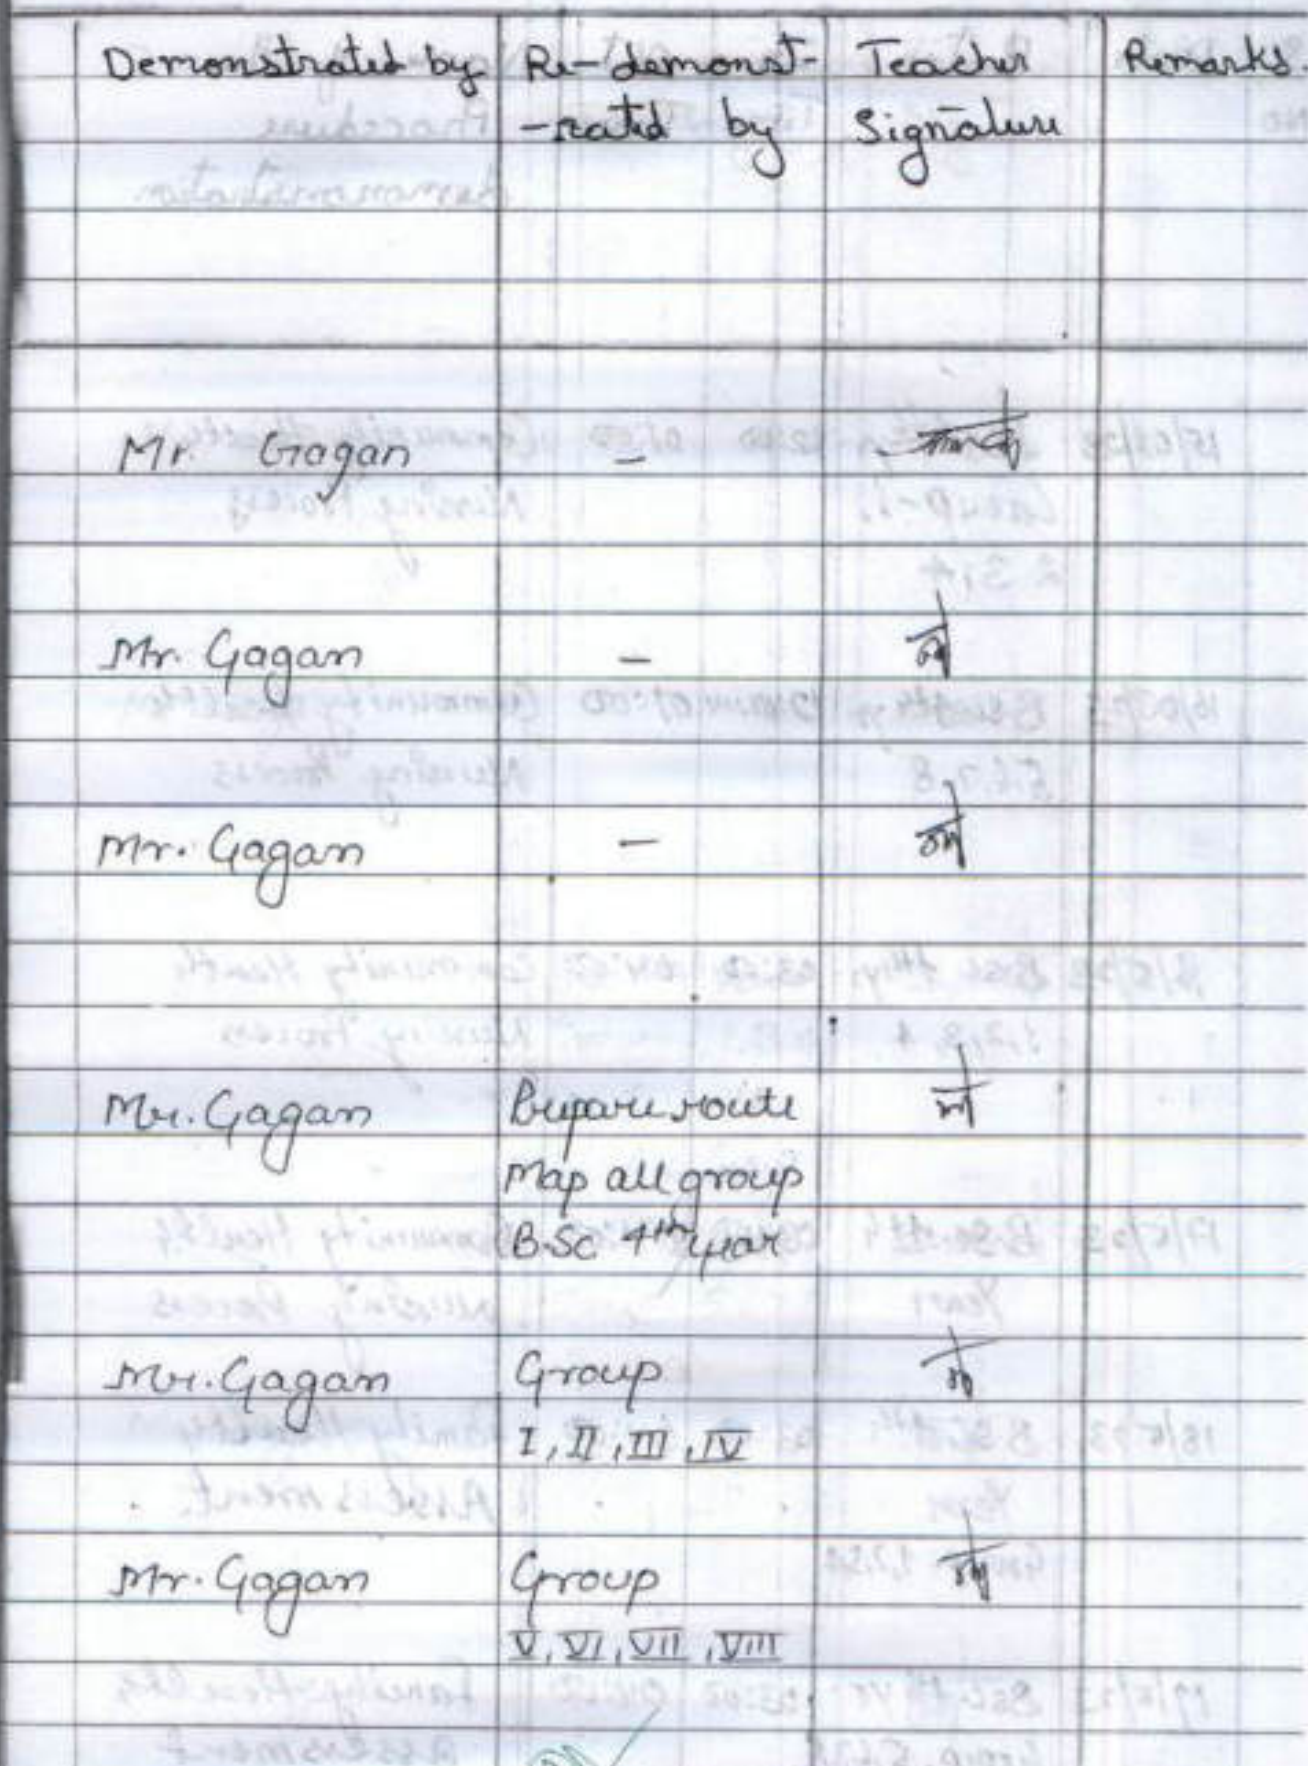 Demonstrated by Re-demonst- Teacher Remarks.
-rated by Signature
Mr. Gagan -
Mr. Gagan -
Mr. Gagan -
Mr. Gagan Prepare route
Map all group
B.Sc 4th year
Mr. Gagan Group
I, II, III, IV
Mr. Gagan Group
V, VI, VII, VIII